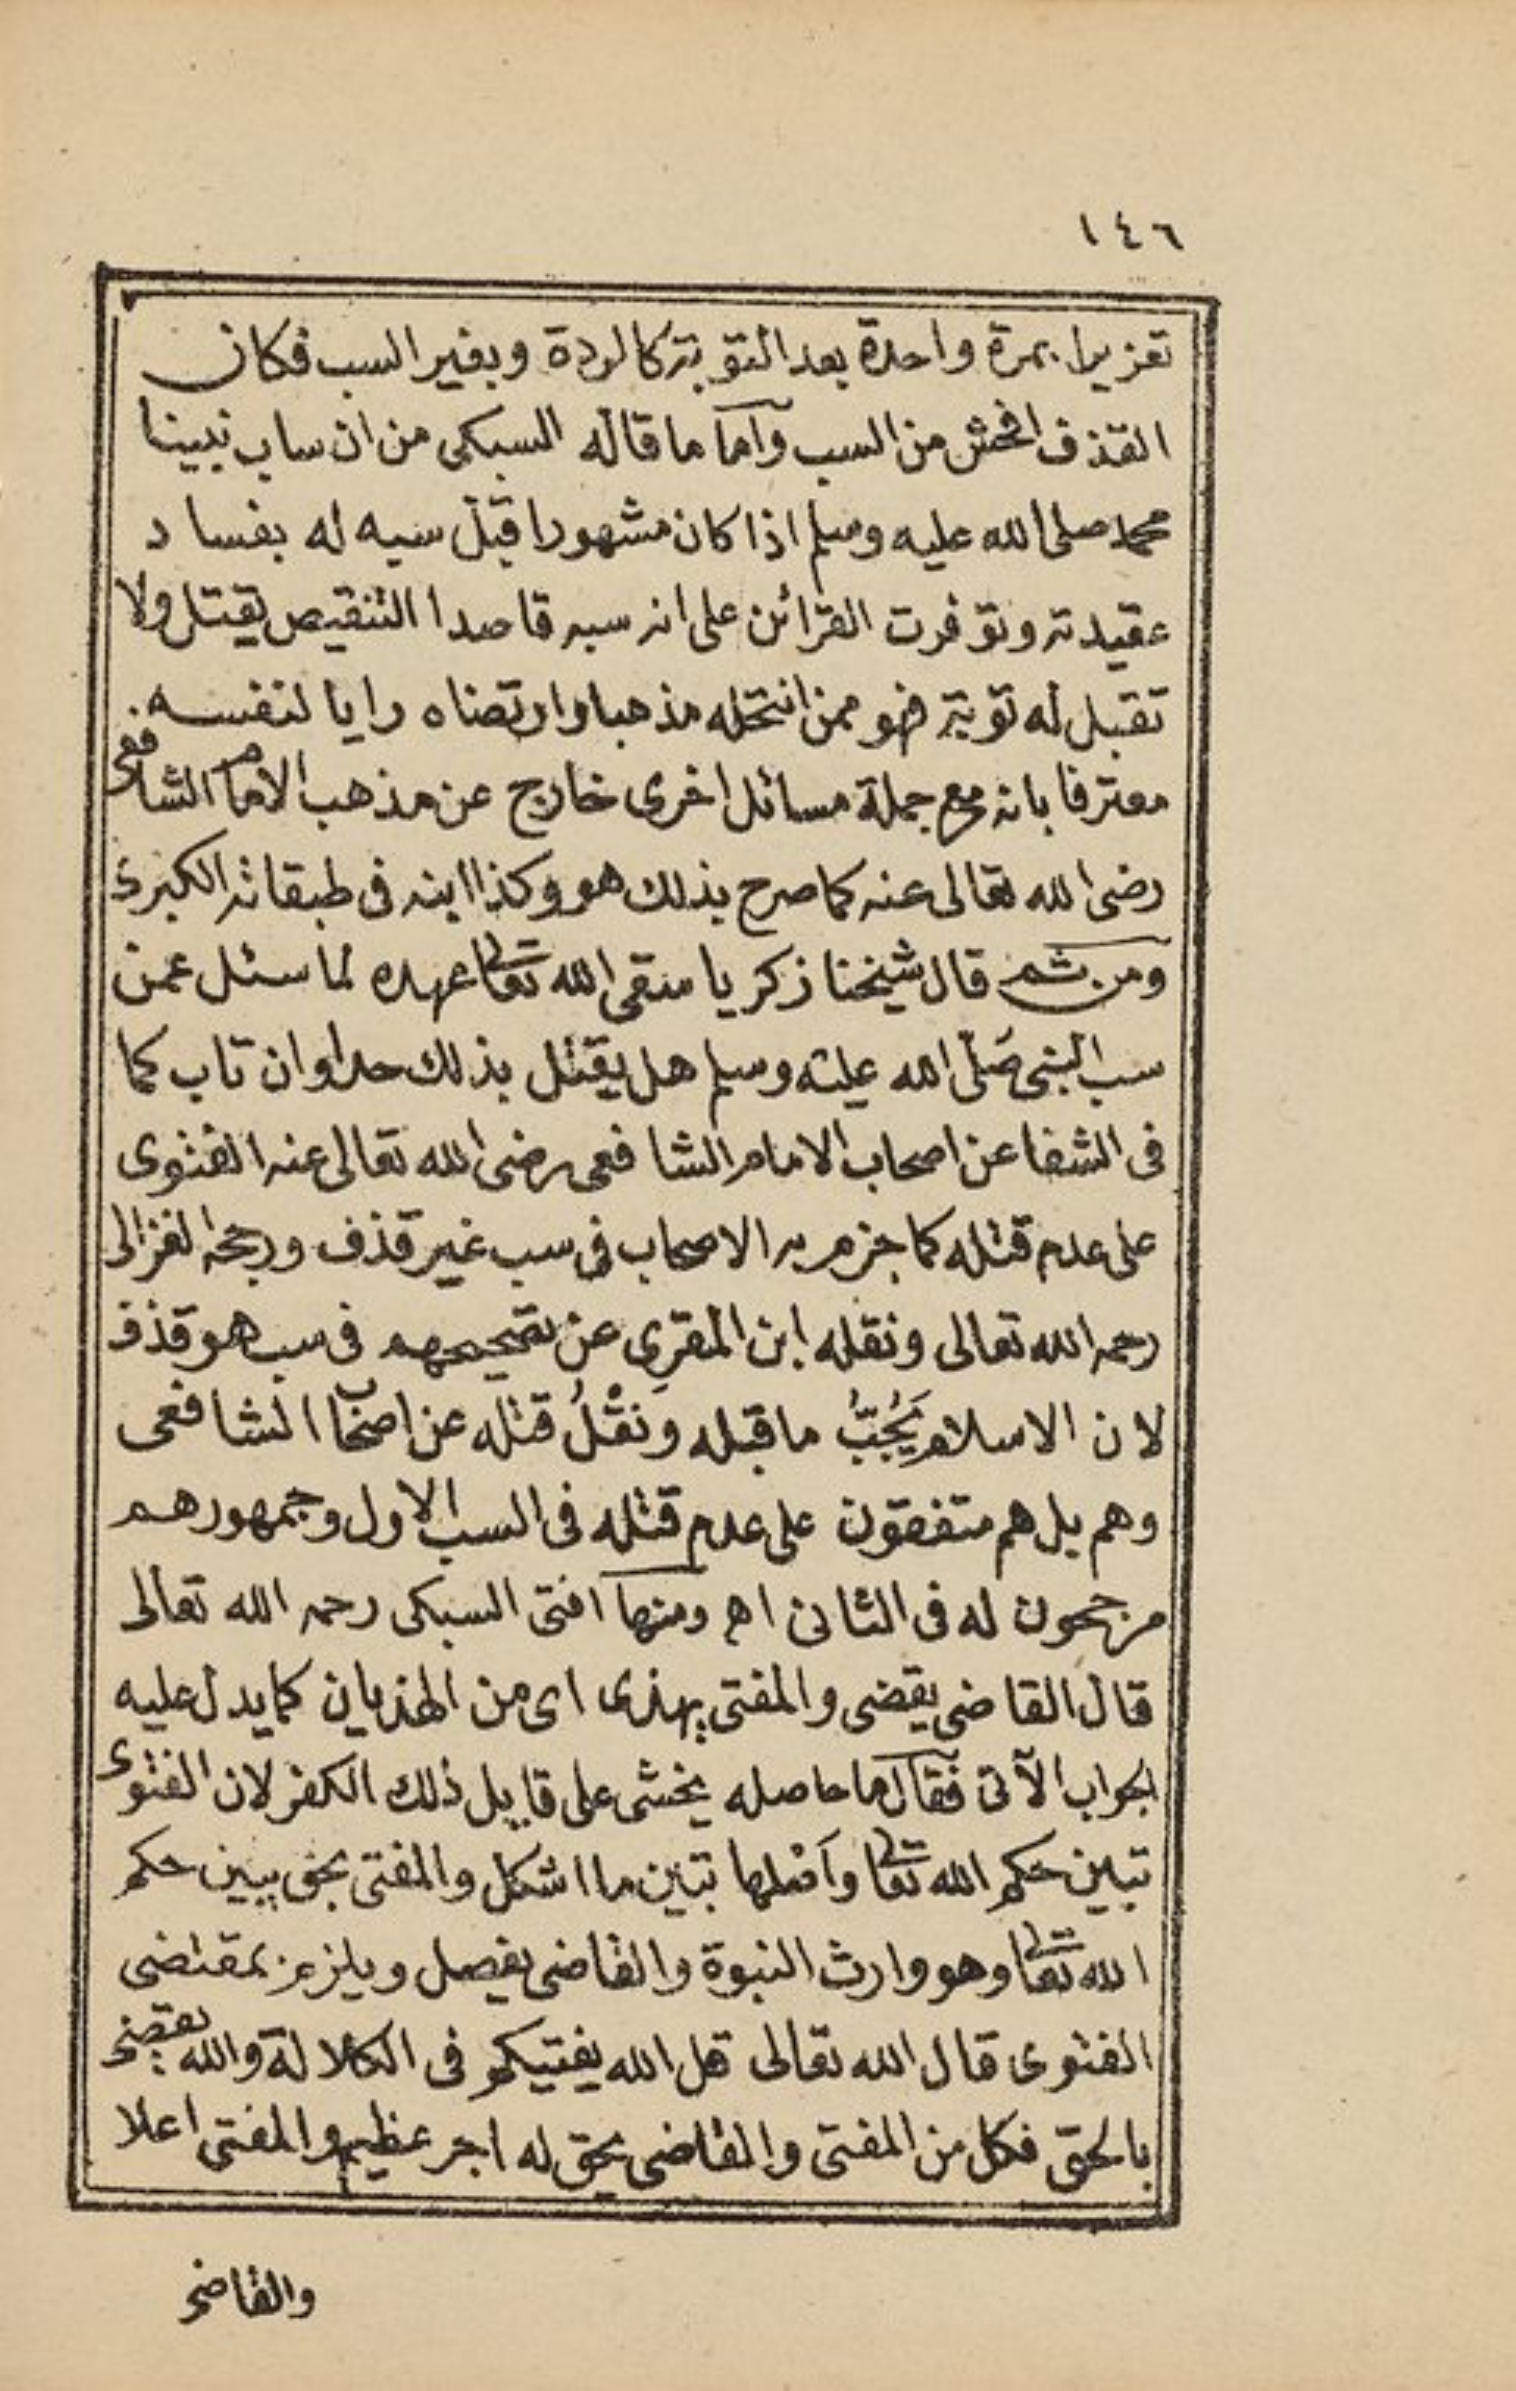 ١٤٦
تعزيرا بمرة واحدة بعد التوبة كالردة وبغير السب فكان
القذف افحش من السب وأما ما قاله السبكى من ان ساب نبينا
محمد صلى الله عليه وسلم اذا كان مشهورا قبل سبه له بفساد
عقيدته وتوفرت القرائن على انه سبه قاصدا التنقيص يقتل ولا
تقبل له توبة فهو ممن انتحله مذهبا وارتضاه رايا لنفسه
معترفا بانه مع جملة مسائل اخرى خارج عن مذهب الامام الشافعى
رضى الله تعالى عنه كما صرح بذلك هو وكذا ابنه فى طبقاته الكبرى
ومن ثم قال شيخنا زكريا سقى الله تعالى عهده لما سئل عمن
سب النبى صَلّى الله عليه وسلم هل يقتل بذلك حدا وان تاب كما
فى الشفا عن اصحاب الامام الشافعى رضى الله تعالى عنه الفتوى
على عدم قتله كما جزم به الاصحاب فى سب غير قذف ورجحه الغزالى
رحمه الله تعالى ونقله ابن المقرِى عن تصحيحهم فى سب هو قذف
لان الاسلام يَجُبُّ ما قبله ونقْلُ قتله عن اصحاب الشافعى
وهم بل هم متفقون على عدم قتله فى السب الاول وجمهورهم
مرجحون له فى الثانى اه ومنها افتى السبكى رحمه الله تعالى
قال القاضى يقضى والمفتى يهذى اى من الهذيان كما يدل عليه
الجواب الآتى فقال ما حاصله يخشى على قايل ذلك الكفر لان الفتوى
تبيين حكم الله تعالى وأصلها تبيين ما اشكل والمفتى بحق يبين حكم
الله تعالى وهو وارث النبوة والقاضى يفصل ويلزم بمقتضى
الفتوى قال الله تعالى قل الله يفتيكم فى الكلالة والله يقضى
بالحق فكل من المفتى والقاضى بحق له اجر عظيم والمفتى اعلا
والقاضى